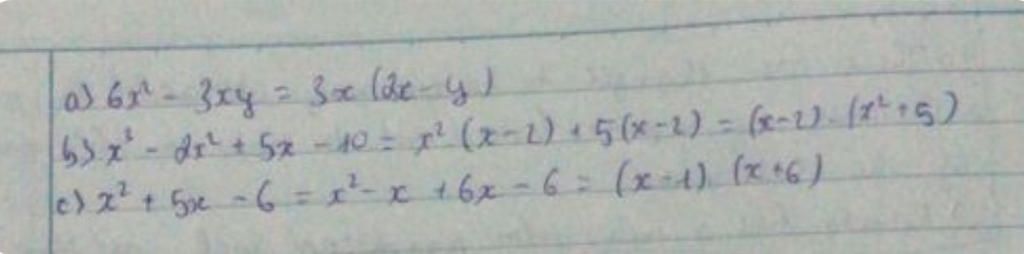 a) 6x² - 3xy = 3x (2x - y)
b) x³ - 2x² + 5x - 10 = x² (x - 2) + 5(x - 2) = (x - 2) . (x² + 5)
c) x² + 5x - 6 = x² - x + 6x - 6 = (x - 1) (x + 6)